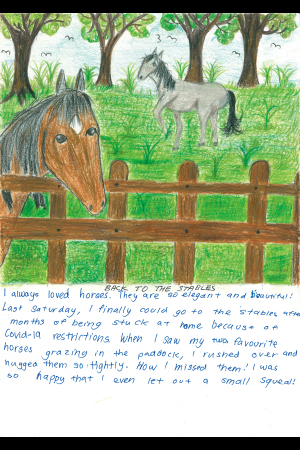 BACK TO THE STABLES
I always loved horses. They are so elegant and beautiful!
Last saturday, I finally could go to the stables after
months of being stuck at home because of
Covid-19 restrictions. When I saw my two favourite
horses grazing in the paddock, I rushed over and
hugged them so tightly. How I missed them! I was
so happy that I even let out a small squeal!